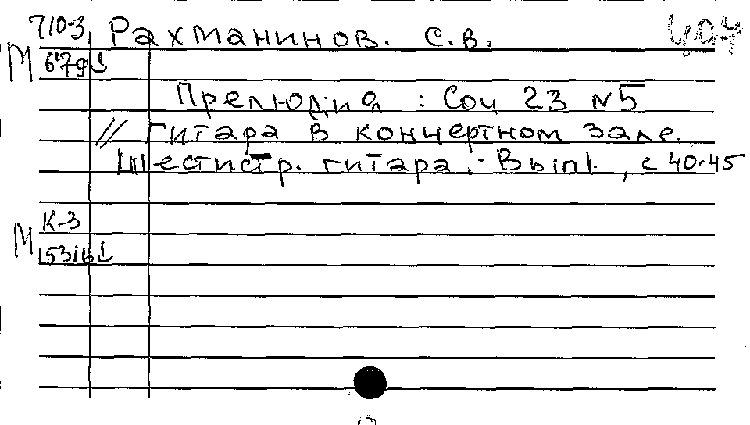 710-3 Рахманинов. С.В.
М
Прелюдия : Соч 23 №5
// Гитара в концертном зале.
Шестистр. гитара. - Вып1. , с 40-45
К-3
М